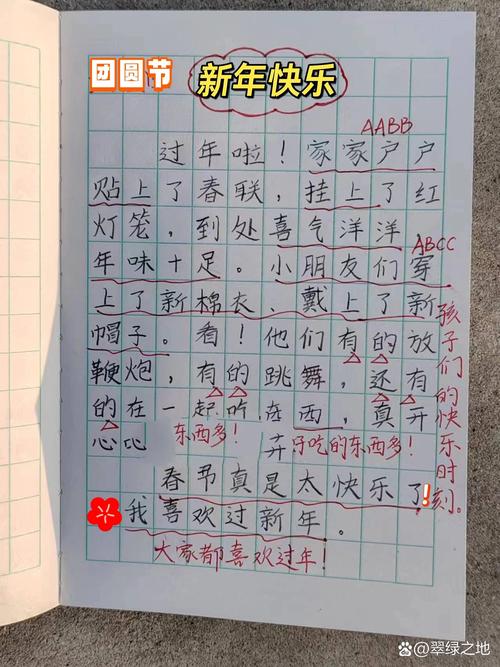 团圆节 新年快乐
AABB
过年啦！家家户户
贴上了春联，挂上了红
灯笼，到处喜气洋洋
ABCC
年味十足。小朋友们穿
上了新棉衣、戴上了新
帽子。看！他们有的放
鞭炮，有的跳舞，还有
的在一起吃东西，真开
心
东西多！
好吃的东西多！
孩子们的快乐时刻。
春节真是太快乐了！
我喜欢过新年。
大家都喜欢过年！
翠绿之地